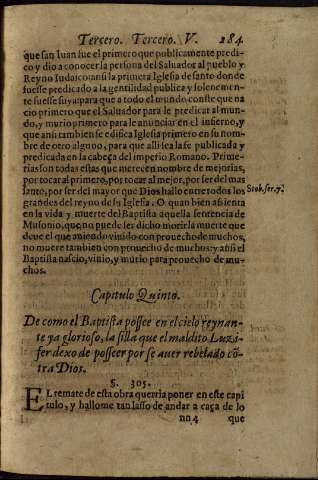 Tercero. Tercero. V. 284.
que san Iuan fue el primero que publicamente predi-
co y dio a conocer la persona del Saluador al pueblo y
Reyno Iudaico: ansi la primera Iglesia de santo donde
fuesse predicado a la gentilidad publica y solenemen-
te fuesse suya: para que a todo el mundo conste que na
cio primero que el Saluador para le predicar al mun-
do, y murio primero para le anunciar en el infierno, y
que ansi tambien se edifica Iglesia primero en su nom-
bre de otro alguno, para que alli sea la fe publicada y
predicada en la cabeça del imperio Romano. Prime-
rias son todas estas que merecen nombre de mejorias,
por tocar al primero, por tocar al mejor, por ser del mas
santo, por ser del mayor que Dios hallo entre todos los
Stob. ser. 7.
grandes del reyno de su Iglesia. O quan bien assienta
en la vida y muerte del Baptista aquella sentencia de
Musonio, que no puede ser dicho morir la muerte que
deue el que auiendo viuido con prouecho de muchos,
no muere tambien con prouecho de muchos: y ansi el
Baptista nascio, viuio, y murio para prouecho de mu-
chos.
Capitulo Quinto.
De como el Baptista possee en el cielo reynan-
te ya glorioso, la silla que el maldito Luzi-
fer dexo de posseer por se auer rebelado cõ-
tra Dios.
§. 305.
EL remate de esta obra querria poner en este capi
tulo, y hallome tan lasso de andar a caça de lo
nn 4 que